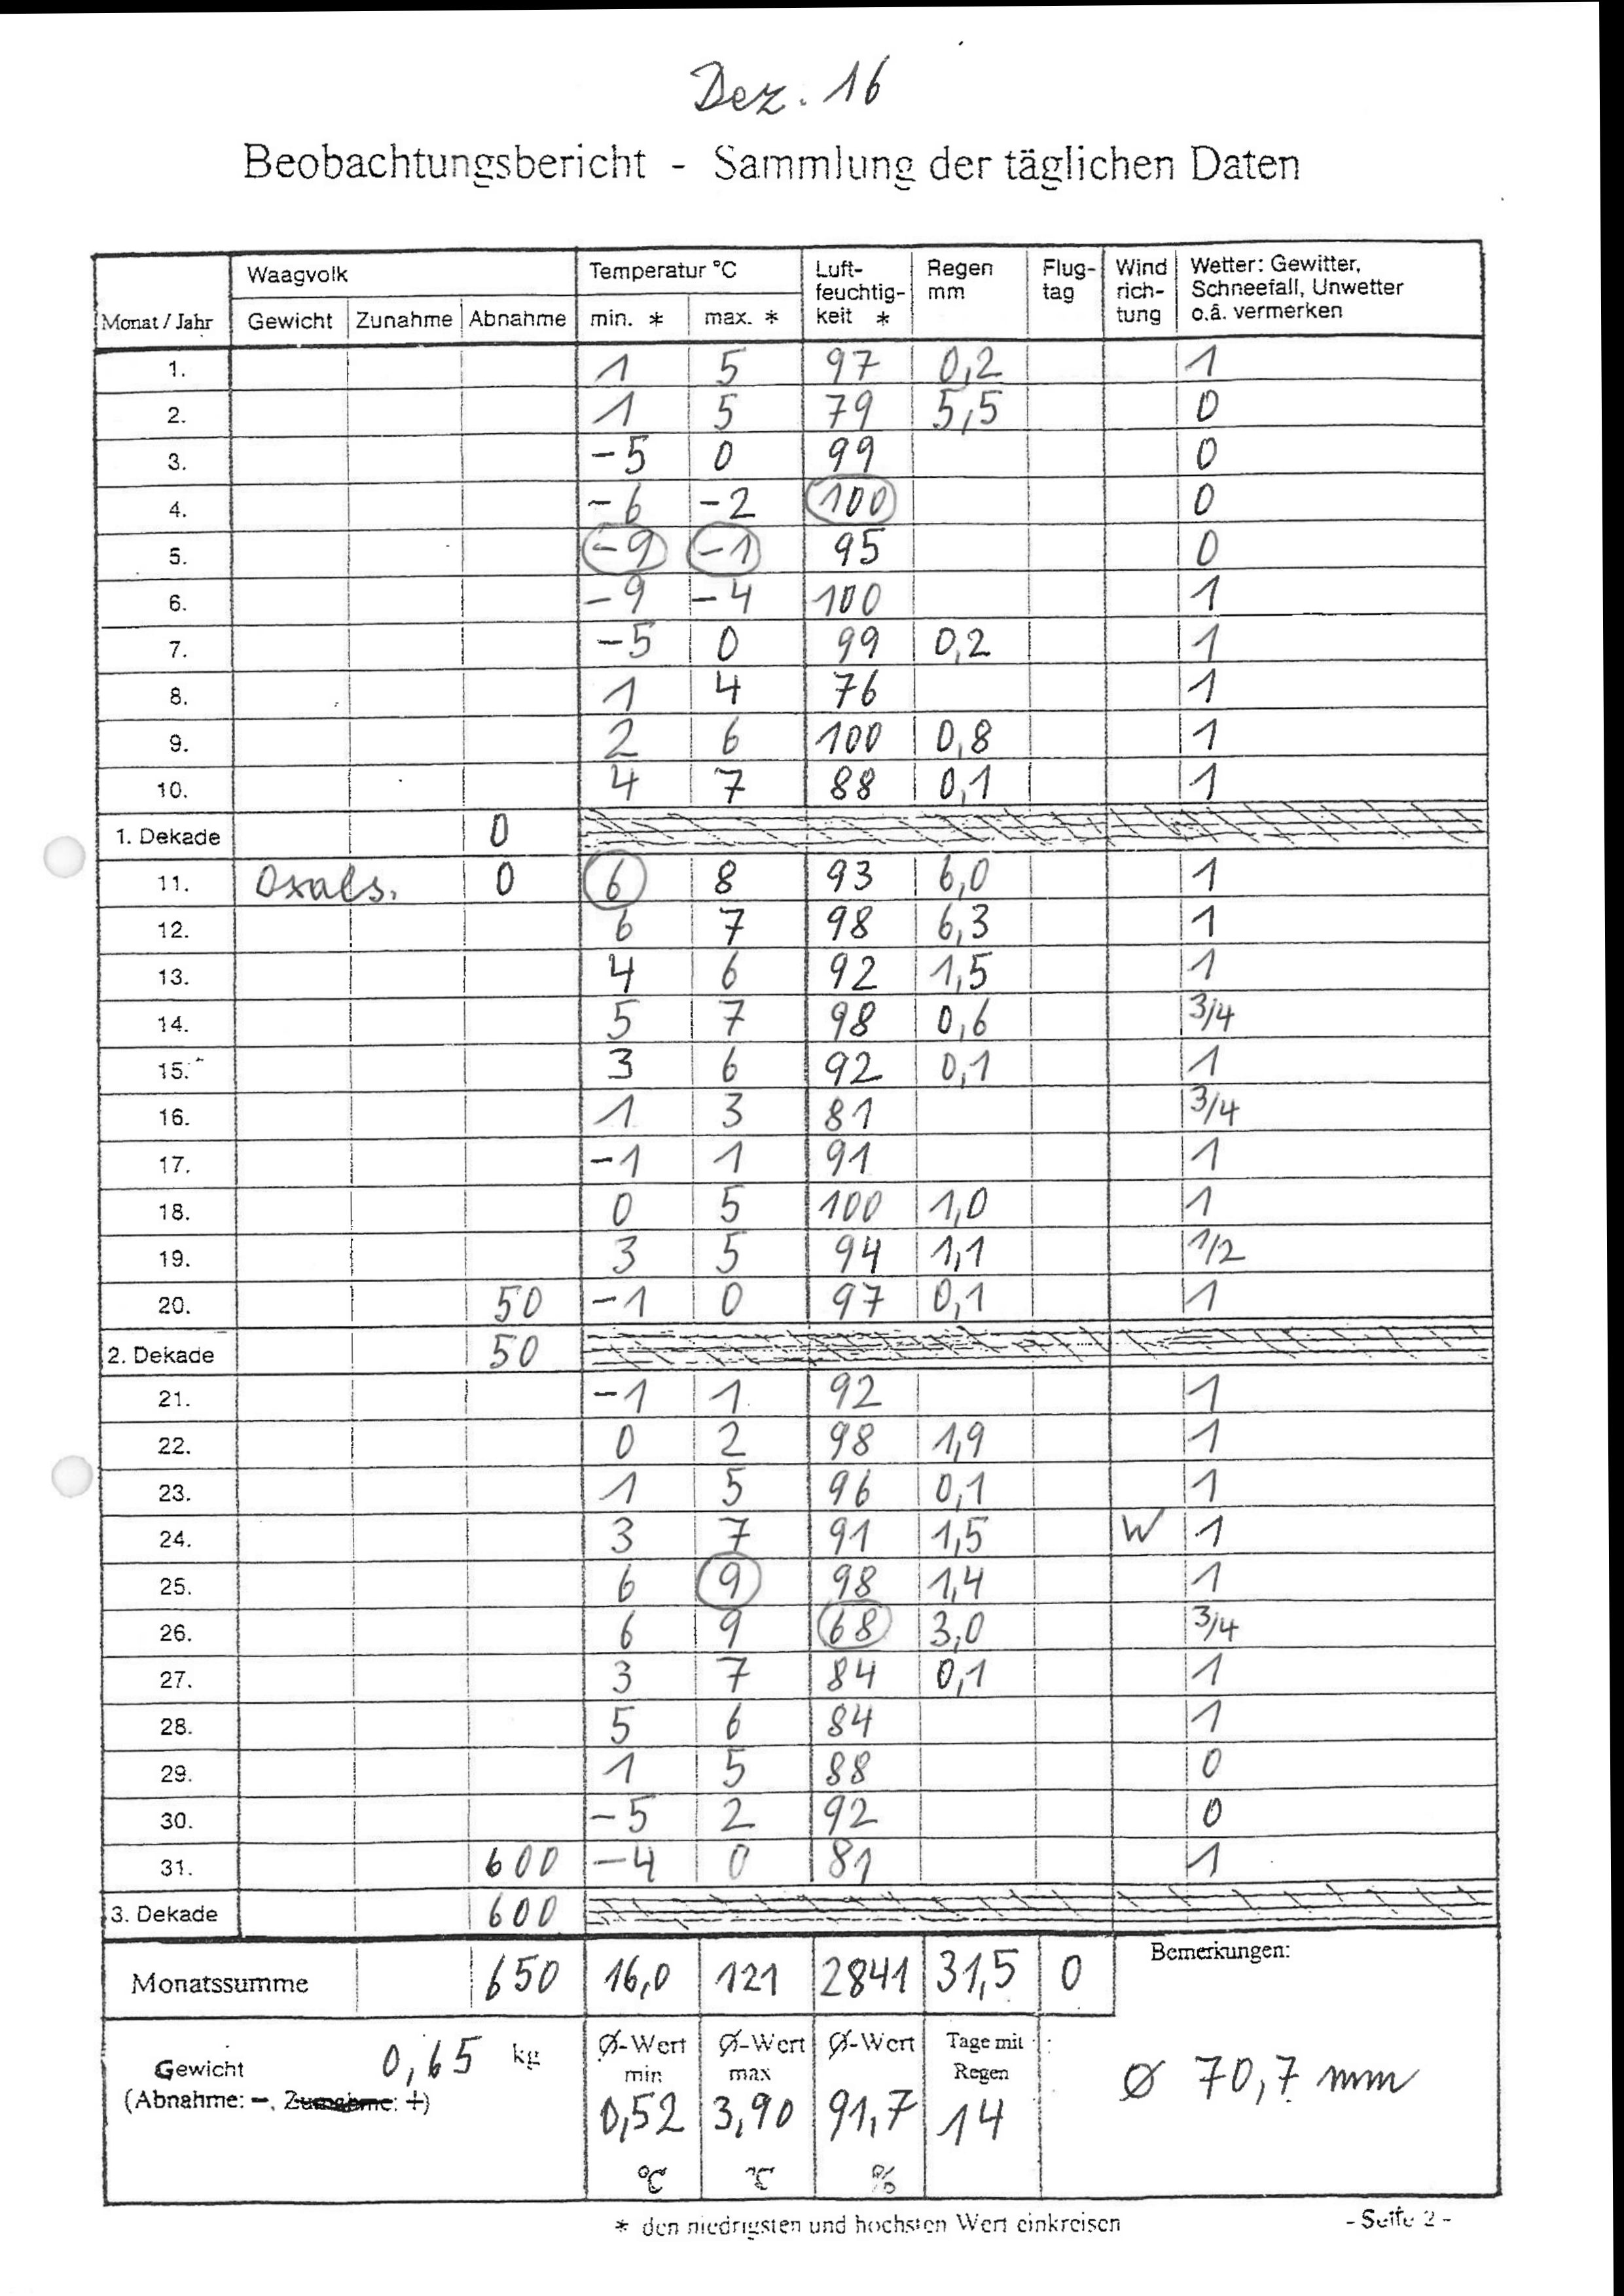 Dez. 16
Beobachtungsbericht - Sammlung der täglichen Daten
Monat / Jahr Waagvolk Temperatur °C Luft-feuchtig-keit * Regen mm Flug-tag Wind rich-tung Wetter: Gewitter, Schneefall, Unwetter o.ä. vermerken
Gewicht Zunahme Abnahme min. * max. *
1. 1 5 97 0,2 1
2. 1 5 79 5,5 0
3. -5 0 99 0
4. -6 -2 100 0
5. -9 -1 95 0
6. -9 -4 100 1
7. -5 0 99 0,2 1
8. 1 4 76 1
9. 2 6 100 0,8 1
10. 4 7 88 0,1 1
1. Dekade 0
11. Oxals. 0 6 8 93 6,0 1
12. 6 7 98 6,3 1
13. 4 6 92 1,5 1
14. 5 7 98 0,6 3/4
15. 3 6 92 0,1 1
16. 1 3 81 3/4
17. -1 1 91 1
18. 0 5 100 1,0 1
19. 3 5 94 1,1 1/2
20. 50 -1 0 97 0,1 1
2. Dekade 50
21. -1 1 92 1
22. 0 2 98 1,9 1
23. 1 5 96 0,1 1
24. 3 7 91 1,5 W 1
25. 6 9 98 1,4 1
26. 6 9 68 3,0 3/4
27. 3 7 84 0,1 1
28. 5 6 84 1
29. 1 5 88 0
30. -5 2 92 0
31. 600 -4 0 81 1
3. Dekade 600
Monatssumme 650 16,0 121 2841 31,5 0 Bemerkungen:
Gewicht 0,65 kg Ø-Wert min Ø-Wert max Ø-Wert Tage mit Regen
(Abnahme: -, Zunahme: +) 0,52 3,90 91,7 14 Ø 70,7 mm
°C °C %
* den niedrigsten und höchsten Wert einkreisen - Seite 2 -